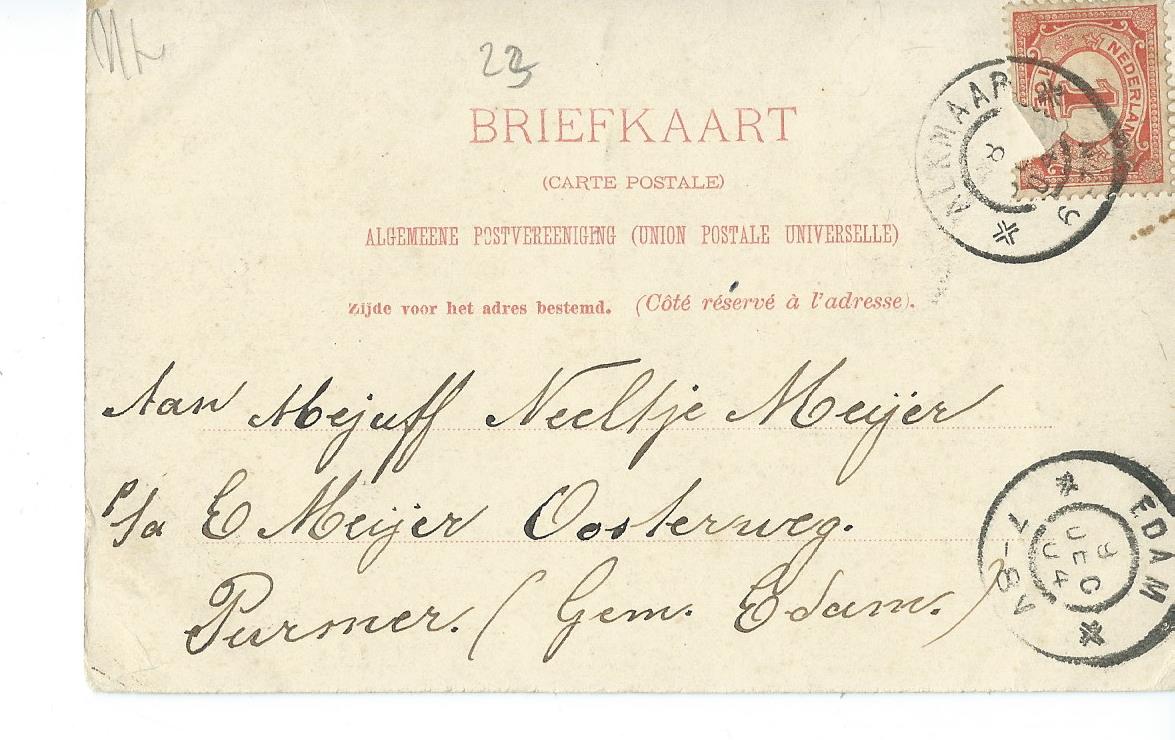 23
BRIEFKAART
(CARTE POSTALE)
ALGEMEENE POSTVEREENIGING (UNION POSTALE UNIVERSELLE)
Zijde voor het adres bestemd. (Côté réservé à l'adresse).
NEDERLAND
1
ALKMAAR
8
Aan Mejuff Neeltje Meijer
p/a E Meijer Oosterweg.
Purmer. (Gem. Edam.)
EDAM
9
DEC
04
7-8